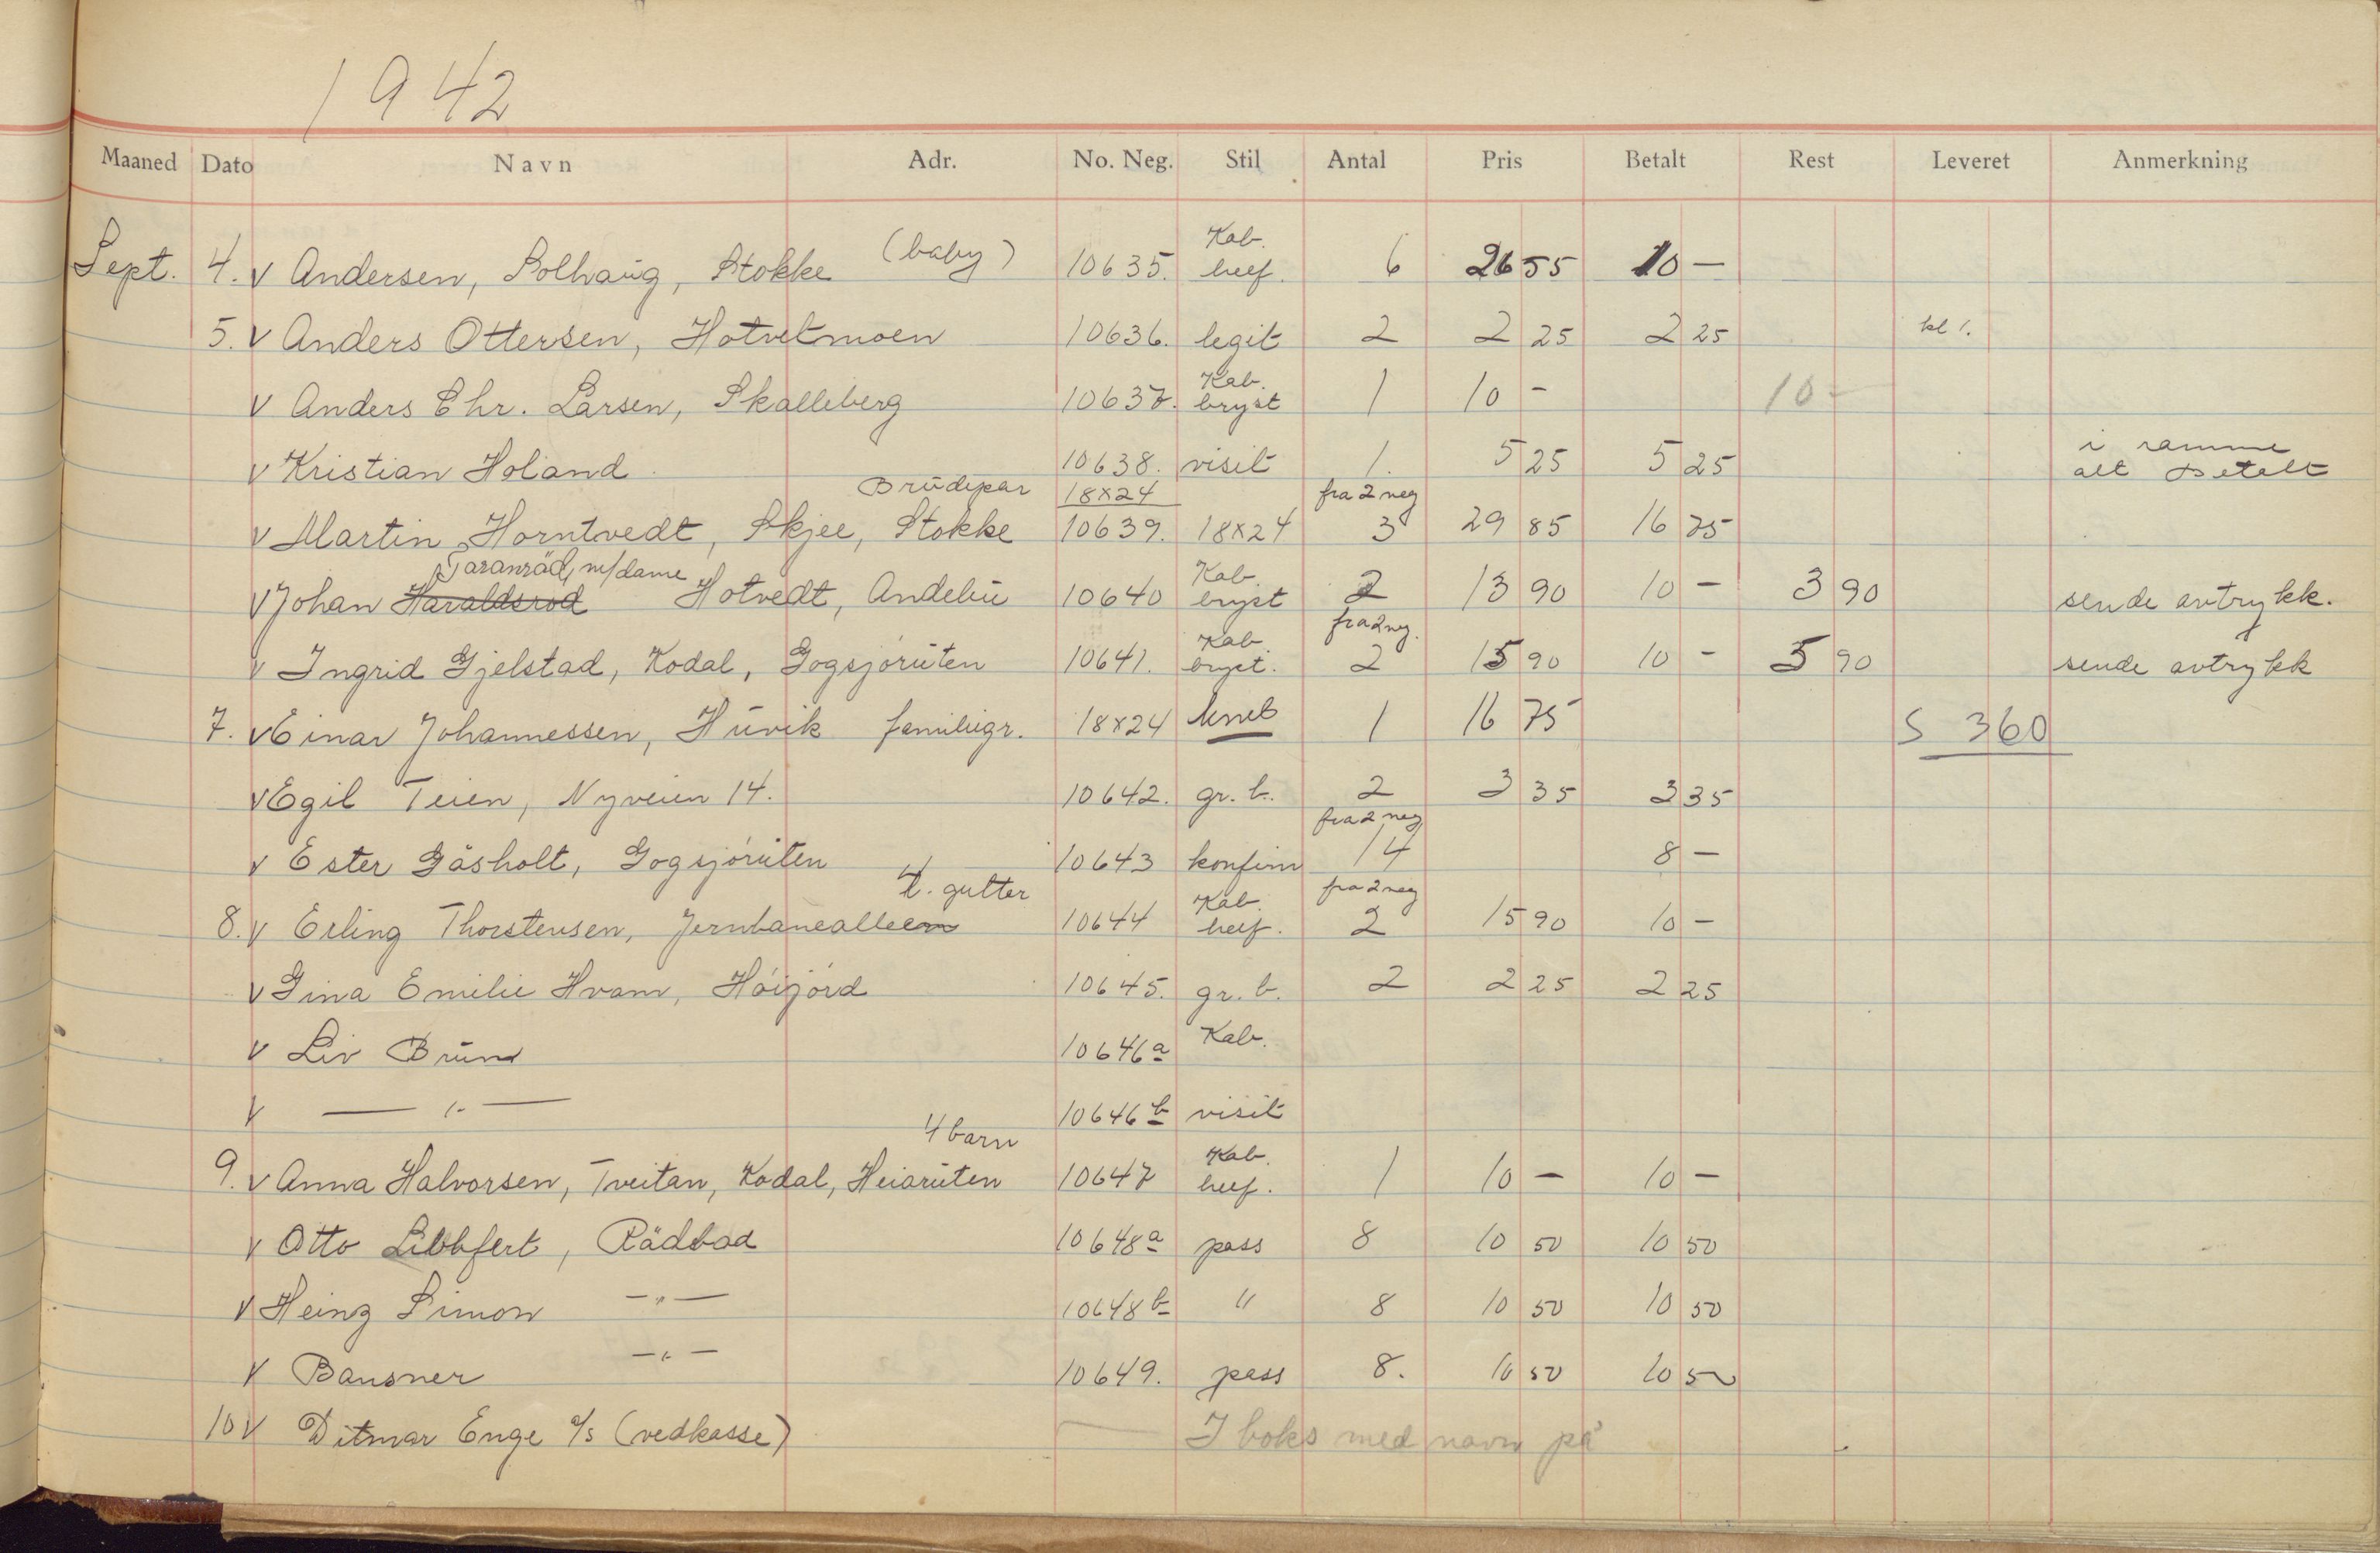 1942
Maaned Dato Navn Adr. No. Neg. Stil Antal Pris Betalt Rest Leveret Anmerkning
Kab.
Sept. 4. v Andersen, Solhaug, Stokke (baby) 10635. heef. 6 26 55 10 —
5. v Anders Ottersen, Hotvetmoen 10636. legit 2 2 25 2 25 kl 1.
Kab.
v Anders Chr. Larsen, Skalleberg 10637. bryst 1 10 - 10 -
i ramme
v Kristian Holand 10638. visit 1. 5 25 5 25 alt betalt
Brudepar 18x24 fra 2 neg
v Martin Horntvedt, Skjee, Stokke 10639. 18x24 3 29 85 16 75
m/dame Kab.
v Johan Haraldsrod Hotvedt, Andebu 10640 bryst 2 13 90 10 — 3 90 sende avtrykk.
Kab. fra 2 neg.
v Ingrid Gjelstad, Kodal, Gogsjoruten 10641. bryst. 2 15 90 10 - 5 90 sende avtrykk
7. v Einar Johannessen, Huvik familiegr. 18x24 1 16 75 S 360
v Egil Teien, Nyveien 14. 10642. gr. b. 2 3 35 3 35
fra 2 neg
v Ester Gåsholt, Gogsjoruten 10643 konfirm 14 8 —
4. gutter Kab. fra 2 neg
8. v Erling Thorstensen, Jernbanealleen 10644 heef. 2 15 90 10 —
v Gina Emilie Hvam, Höijord 10645. gr. b. 2 2 25 2 25
v Liv Brünn 10646a Kab.
v — „ — 10646b visit
4 barn Kab.
9. v Anna Halvorsen, Tveitan, Kodal, Heiaruten 10647 heef. 1 10 — 10 —
v Otto Libbfert, Rädbad 10648a pass 8 10 50 10 50
v Heinz Simon — „ — 10648b " 8 10 50 10 50
v Bausner — „ — 10649. pass 8. 10 50 10 50
10 v Ditmar Enge a/s (vedkasse) — I boks med navn på